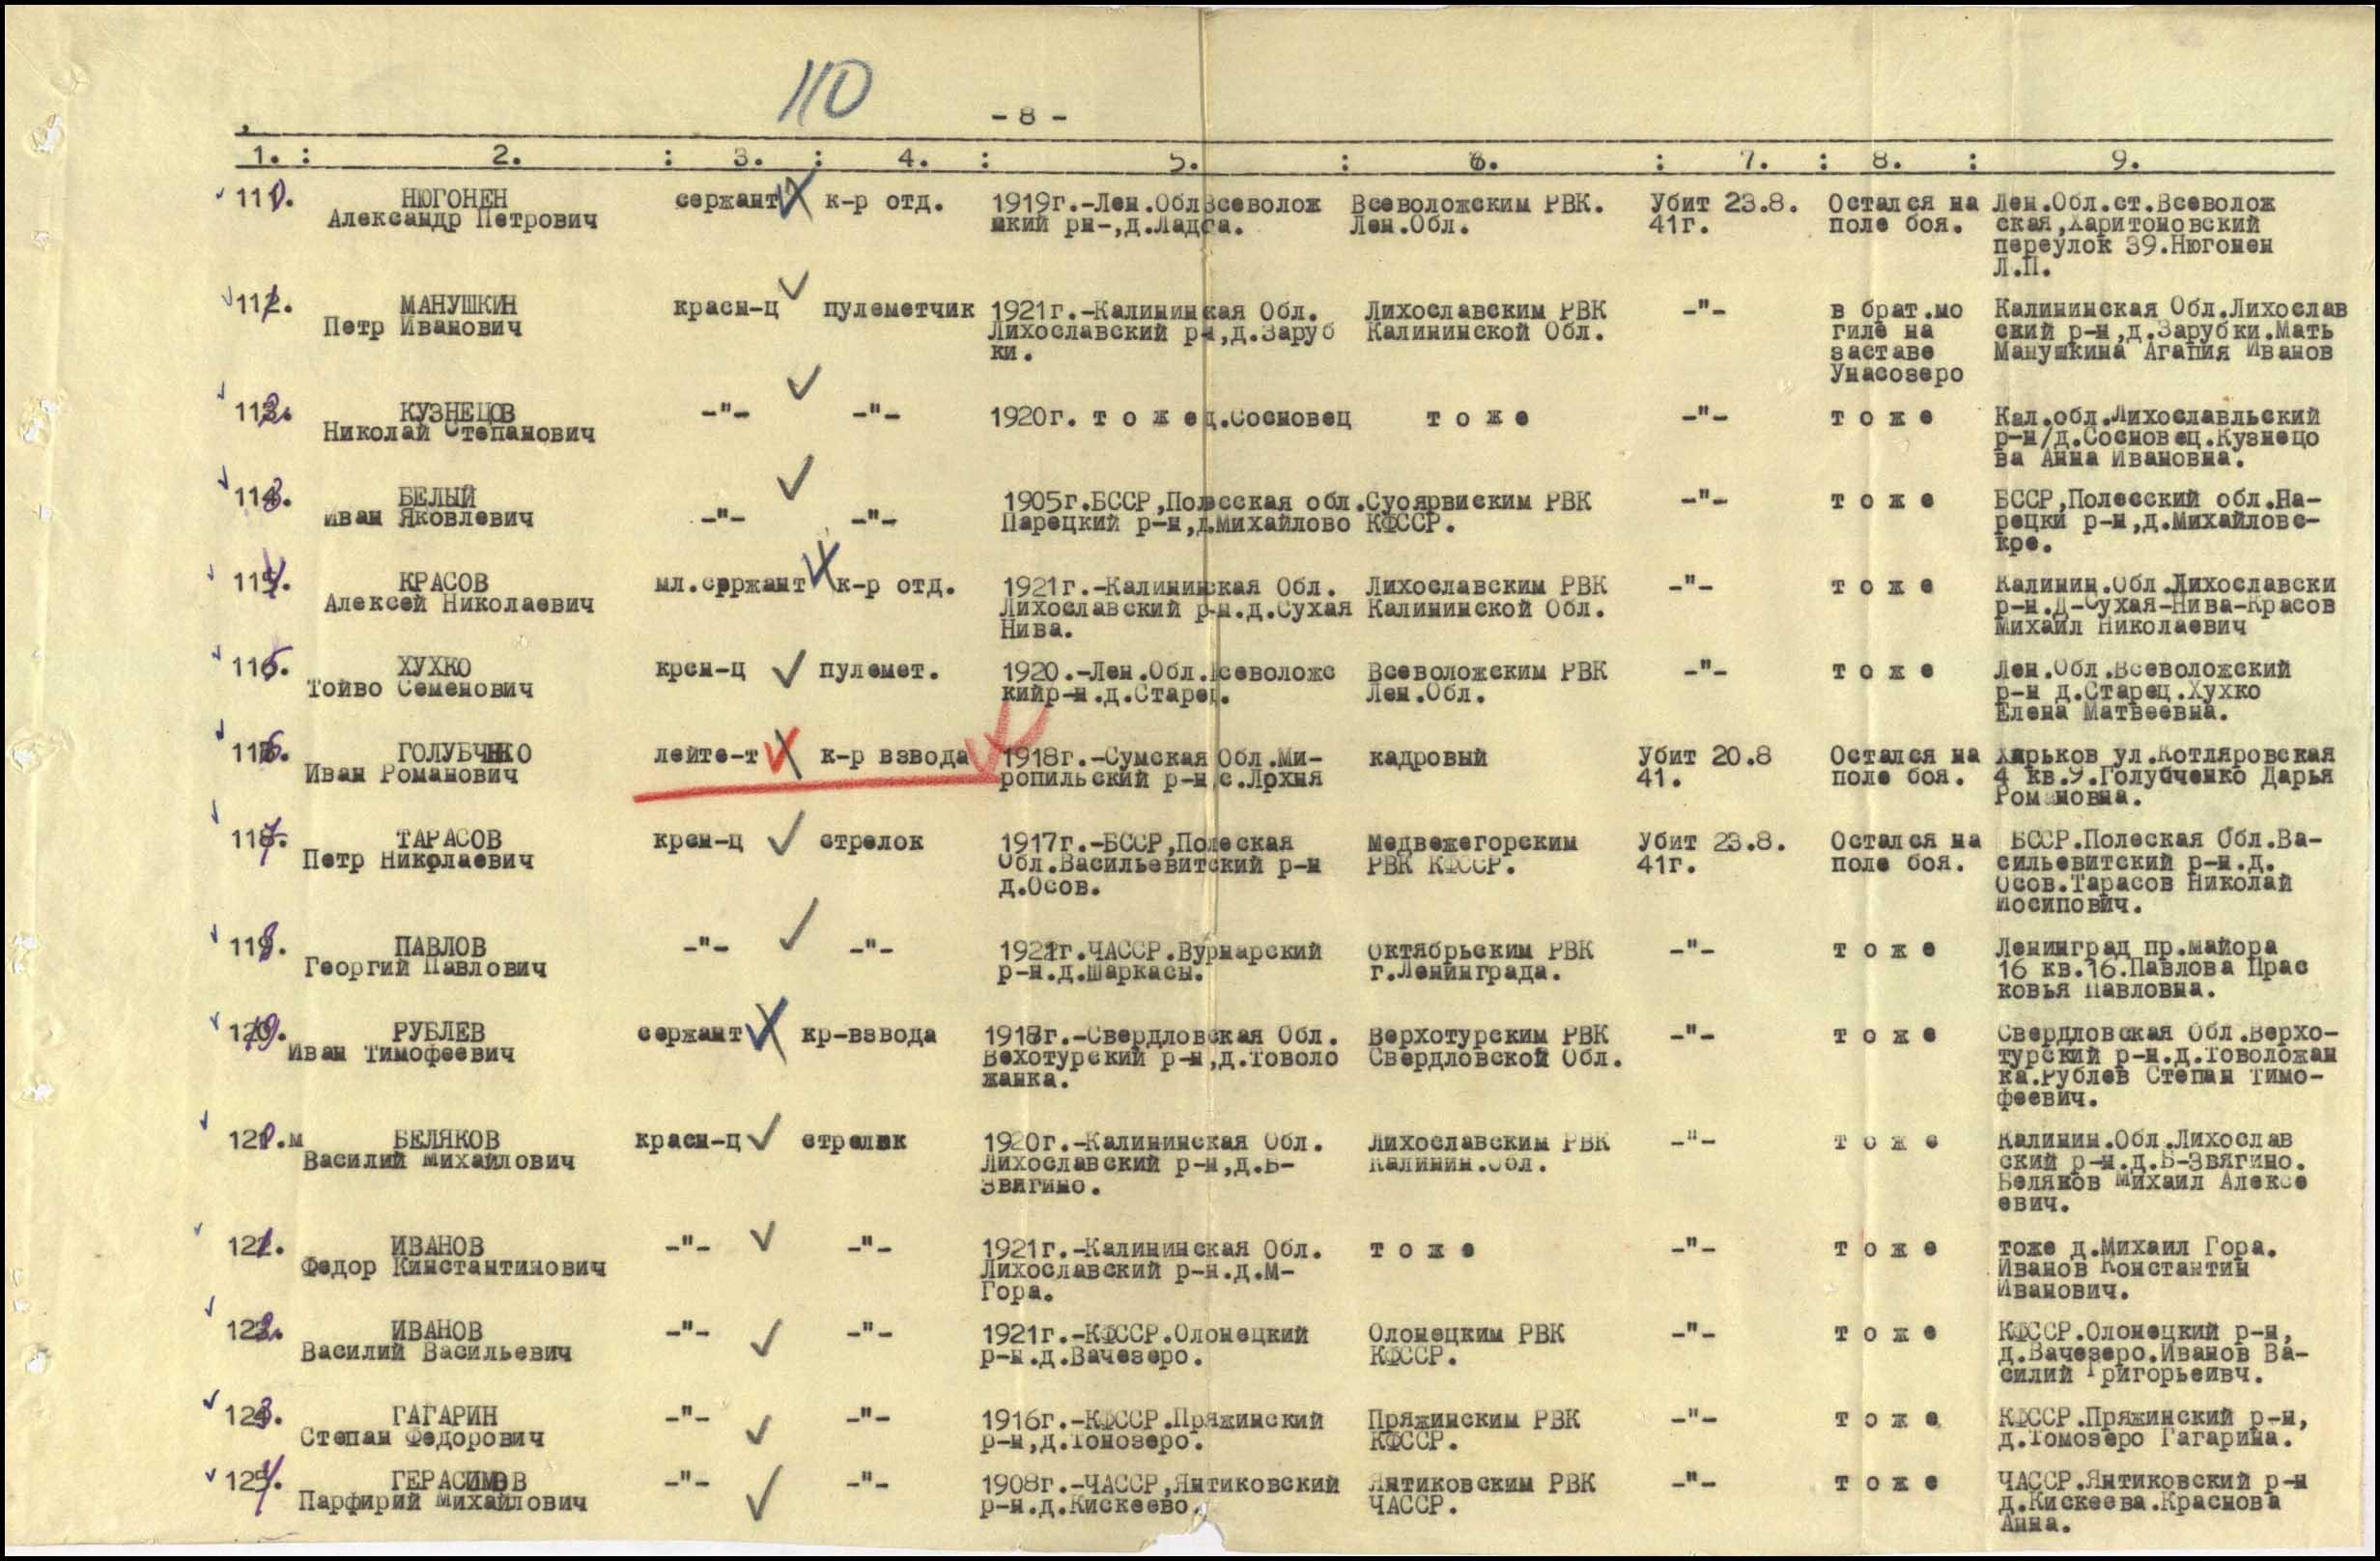 110
- 8 -
1. : 2. : 3. : 4. : 5. : 6. : 7. : 8. : 9.
110. НЮГОНЕН сержант к-р отд. 1919г.-Лен.Обл.Всеволож Всеволожским РВК. Убит 23.8. Остался на Лен.Обл.ст.Всеволож
Александр Петрович ский рн-,д.Ладога. Лен.Обл. 41г. поле боя. ская,Харитоновский
переулок 39.Нюгонен
Л.П.
111. МАНУШКИН красн-ц пулеметчик 1921г.-Калининская Обл. Лихославским РВК -"- в брат.мо Калининская Обл.Лихослав
Петр Иванович Лихославский р-н,д.Заруб Калининской Обл. гиле на ский р-н,д.Зарубки.Мать
ки. заставе Манушкина Агапия Иванов
Унасозеро
112. КУЗНЕЦОВ -"- -"- 1920г. т о ж е д.Сосновец т о ж е -"- т о ж е Кал.обл.Лихославльский
Николай Степанович р-н/д.Сосновец.Кузнецо
ва Анна Ивановна.
113. БЕЛЫЙ 1905г.БССР,Полесская обл.Суоярвиским РВК -"- т о ж е БССР,Полесский обл.На-
Иван Яковлевич -"- -"- Парецкий р-н,д.Михайлово КФССР. рецки р-н,д.Михайловс-
кре.
114. КРАСОВ мл.сержант к-р отд. 1921г.-Калининская Обл. Лихославским РВК -"- т о ж е Калинин.Обл.Лихославски
Алексей Николаевич Лихославский р-н.д.Сухая Калининской Обл. р-н.Д-Сухая-Нива-Красов
Нива. Михаил Николаевич
115. ХУХКО крсн-ц пулемет. 1920.-Лен.Обл.Всеволожс Всеволожским РВК -"- т о ж е Лен.Обл.Всеволожский
Тойво Семенович кийр-н.д.Старец. Лен.Обл. р-н д.Старец.Хухко
Елена Матвеевна.
116. ГОЛУБЧЕНКО лейте-т к-р взвода 1918г.-Сумская Обл.Ми- кадровый Убит 20.8 Остался на Харьков ул.Котляровская
Иван Романович ропильский р-н с.Лрхня 41. поле боя. 4 кв.9.Голубченко Дарья
Романовна.
117. ТАРАСОВ крсн-ц стрелок 1917г.-БССР,Полеская Медвежегорским Убит 23.8. Остался на БССР.Полеская Обл.Ва-
Петр Николаевич Обл.Васильевитский р-н РВК КФССР. 41г. поле боя. сильевитский р-н.д.
д.Осов. Осов.Тарасов Николай
Иосипович.
118. ПАВЛОВ -"- -"- 1921г.ЧАССР.Вурнарский Октябрьским РВК -"- т о ж е Ленинград пр.майора
Георгий Павлович р-н.д.Шаркасы. г.Ленинграда. 16 кв.16.Павлова Прас
ковья Павловна.
119. РУБЛЕВ сержант кр-взвода 1918г.-Свердловская Обл. Верхотурским РВК -"- т о ж е Свердловская Обл.Верхо-
Иван Тимофеевич Вехотурский р-н,д.Товоло Свердловской Обл. турский р-н.д.Товоложан
жанка. ка.Рублев Степан Тимо-
феевич.
120.м БЕЛЯКОВ красн-ц стрелок 1920г.-Калининская Обл. Лихославским РВК -"- т о ж е Калинин.Обл.Лихослав
Василий Михайлович Лихославский р-н,д.Б- Калинин.Обл. ский р-н.д.Б-Звягино.
Звягино. Беляков Михаил Алексе
евич.
121. ИВАНОВ -"- -"- 1921г.-Калининская Обл. т о ж е -"- т о ж е тоже д.Михаил Гора.
Федор Кинстантинович Лихославский р-н.д.М- Иванов Константин
Гора. Иванович.
122. ИВАНОВ -"- -"- 1921г.-КФССР.Олонецкий Олонецким РВК -"- т о ж е КФССР.Олонецкий р-н,
Василий Васильевич р-н.д.Вачезеро. КФССР. д.Вачезеро.Иванов Ва-
силий Григорьеивч.
123. ГАГАРИН -"- -"- 1916г.-КФССР.Пряжинский Пряжинским РВК -"- т о ж е КФССР.Пряжинский р-н,
Степан Федорович р-н,д.Томозеро. КФССР. д.Томозеро Гагарина.
124. ГЕРАСИМОВ -"- -"- 1908г.-ЧАССР,Янтиковский Янтиковским РВК -"- т о ж е ЧАССР.Янтиковский р-н
Парфирий Михайлович р-н.д.Кискеево. ЧАССР. д.Кискеева.Краснова
Анна.